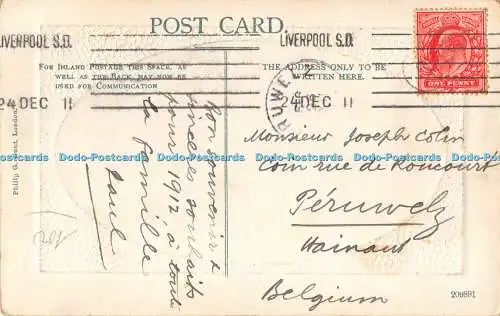 POST CARD.
LIVERPOOL S.D.
LIVERPOOL S.D.
FOR INLAND POSTAGE THIS SPACE, AS
WELL AS THE BACK, MAY NOW BE
USED FOR COMMUNICATION
THE ADDRESS ONLY TO BE
WRITTEN HERE.
24 DEC 11
24 DEC 11
ONE PENNY
Bon souvenir &
sincères souhaits
pour 1912 à toute
la famille
Paul
Monsieur Joseph Colin
Coin rue de Roucourt
Péruwelz
Hainaut
Belgium
Philip G. London
Dodo-Postcards Dodo-Postcards Dodo-Postcards Dodo-Postcards Dodo-Postcards
206891